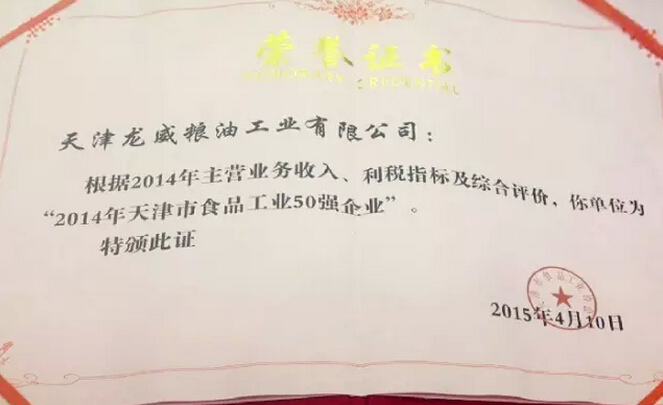 荣誉证书
HONORARY CREDENTIAL
天津龙威粮油工业有限公司：
根据2014年主营业务收入、利税指标及综合评价，你单位为
“2014年天津市食品工业50强企业”。
特颁此证
天津市食品工业协会
2015年4月10日